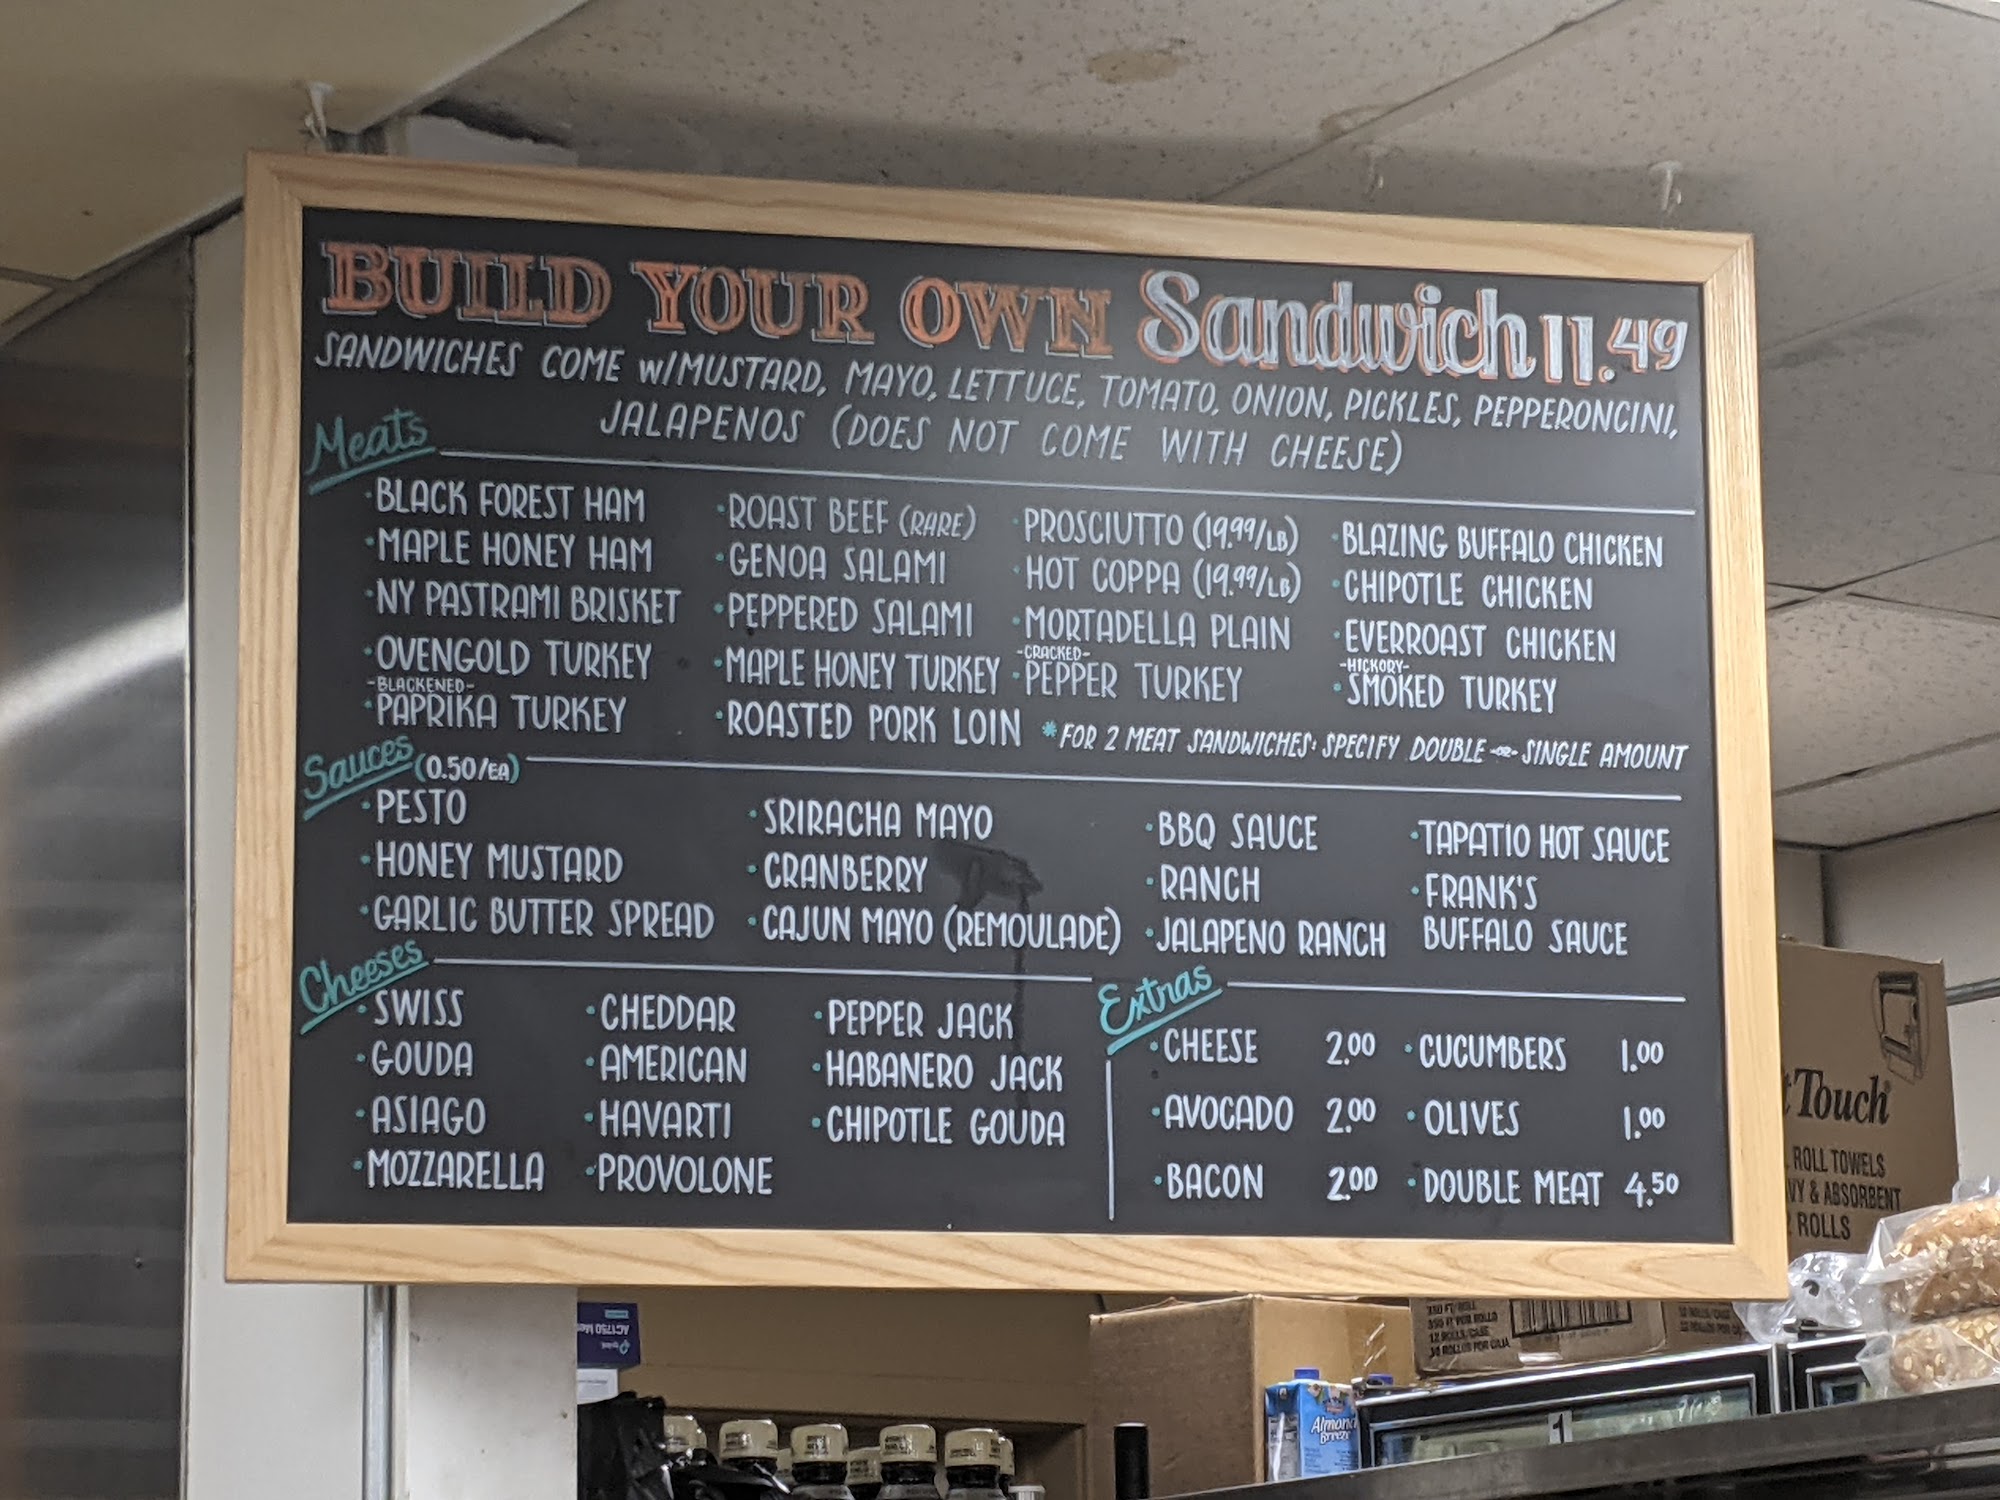 BUILD YOUR OWN Sandwich 11.49
SANDWICHES COME w/MUSTARD, MAYO, LETTUCE, TOMATO, ONION, PICKLES, PEPPERONCINI,
JALAPENOS (DOES NOT COME WITH CHEESE)
Meats
·BLACK FOREST HAM
·MAPLE HONEY HAM
·NY PASTRAMI BRISKET
·OVENGOLD TURKEY
-BLACKENED-
·PAPRIKA TURKEY
·ROAST BEEF (RARE)
·GENOA SALAMI
·PEPPERED SALAMI
·MAPLE HONEY TURKEY
·ROASTED PORK LOIN
·PROSCIUTTO (19.99/LB)
·HOT COPPA (19.99/LB)
·MORTADELLA PLAIN
-CRACKED-
·PEPPER TURKEY
·BLAZING BUFFALO CHICKEN
·CHIPOTLE CHICKEN
·EVERROAST CHICKEN
-HICKORY-
·SMOKED TURKEY
*FOR 2 MEAT SANDWICHES: SPECIFY DOUBLE -OR- SINGLE AMOUNT
Sauces (0.50/EA)
·PESTO
·HONEY MUSTARD
·GARLIC BUTTER SPREAD
·SRIRACHA MAYO
·CRANBERRY
·CAJUN MAYO (REMOULADE)
·BBQ SAUCE
·RANCH
·JALAPENO RANCH
·TAPATIO HOT SAUCE
·FRANK'S
BUFFALO SAUCE
Cheeses
·SWISS
·GOUDA
·ASIAGO
·MOZZARELLA
·CHEDDAR
·AMERICAN
·HAVARTI
·PROVOLONE
·PEPPER JACK
·HABANERO JACK
·CHIPOTLE GOUDA
Extras
·CHEESE 2.00
·AVOCADO 2.00
·BACON 2.00
·CUCUMBERS 1.00
·OLIVES 1.00
·DOUBLE MEAT 4.50
Touch
ROLL TOWELS
& ABSORBENT
ROLLS
AC1750
350 FT/ROLL
12 ROLLS/CASE
Almond
Breeze
1